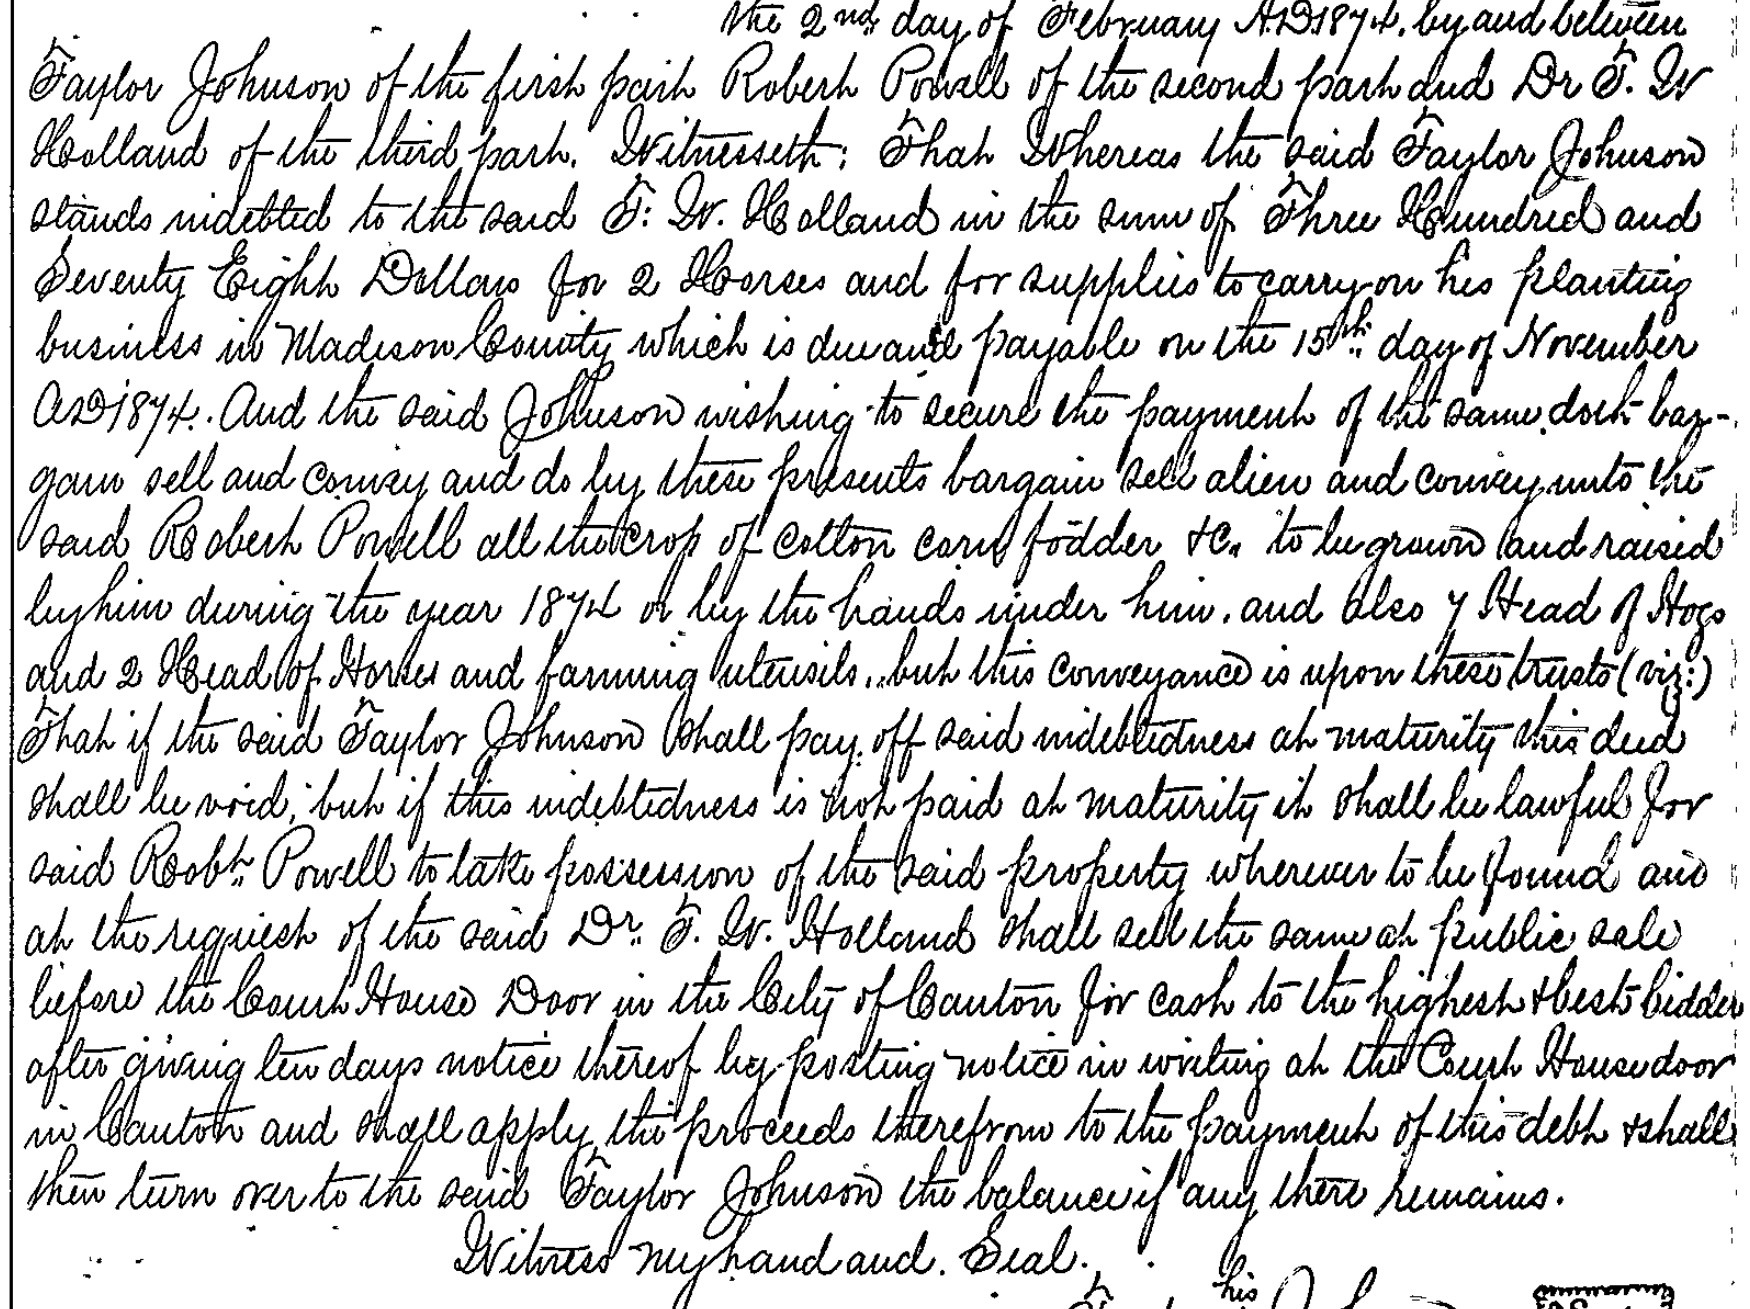 the 2nd day of February A.D. 1874. by and between
Taylor Johnson of the first part Robert Powell of the second part and Dr T. W
Holland of the third part. Witnesseth: That Whereas the said Taylor Johnson
stands indebted to the said T. W. Holland in the sum of Three Hundred and
Seventy Eight Dollars for 2 Horses and for supplies to carry on his planting
business in Madison County which is due and payable on the 15th day of November
AD 1874. And the said Johnson wishing to secure the payment of the same doth bar-
gain sell and convey and do by these presents bargain sell alien and convey unto the
said Robert Powell all the crop of cotton corn fodder &c. to be grown and raised
by him during the year 1874 or by the hands under him. and also 7 Head of Hogs
and 2 Head of Horses and farming utensils.. but this conveyance is upon these trusts (viz:)
That if the said Taylor Johnson shall pay off said indebtedness at maturity this deed
shall be void; but if this indebtedness is not paid at maturity it shall be lawful for
said Robt. Powell to take possession of the said property wherever to be found and
at the request of the said Dr. T. W. Holland shall sell the same at public sale
before the Court House Door in the City of Canton for cash to the highest & best bidder
after giving ten days notice thereof by posting notice in writing at the Court House door
in Canton and shall apply the proceeds therefrom to the payment of this debt & shall
then turn over to the said Taylor Johnson the balance if any there remains.
Witness my hand and Seal.
his